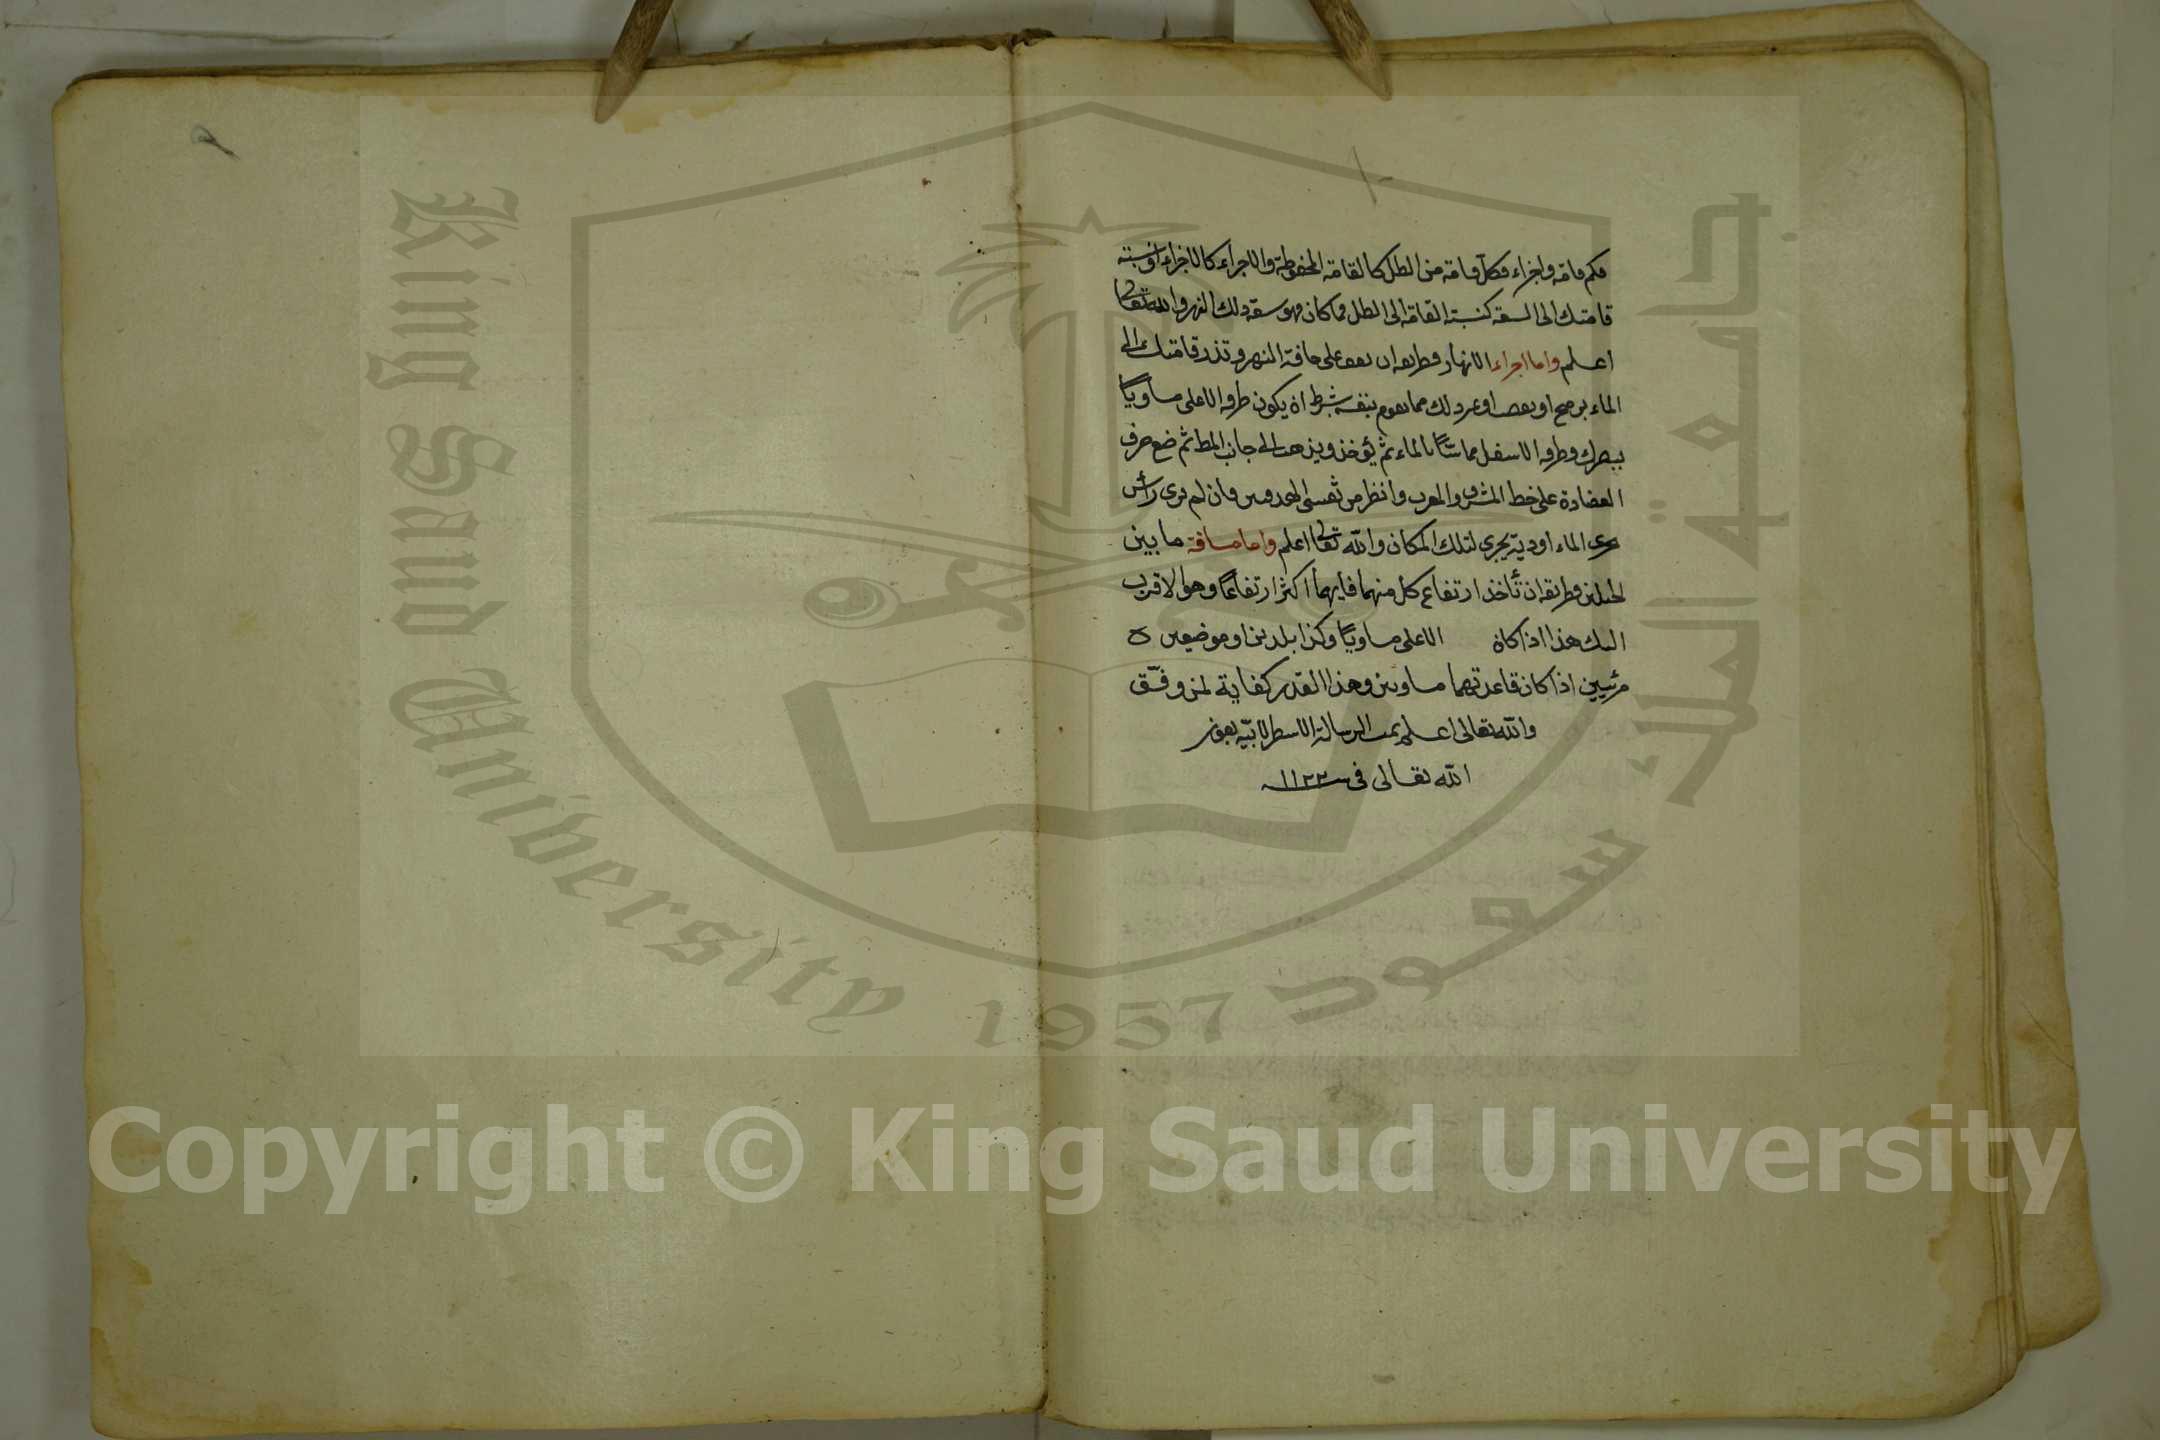 فكم قامة واجزاء فكل قامة من الظل كالقامة المحفوظة والاجزاء كالاجزاء او نسبة
قامتك الى السعة كنسبة القامة الى الظل فما كان فهو سعة ذلك النهر والله تعالى
اعلم واما اجراء الانهار فطريقه ان تقف على حافة النهر وتذر قامتك الى
الماء برمح او بقصب او غير ذلك مما يقوم بنفسه بشرط ان يكون طرفه الاعلى مساويًا
ببصرك وطرفه الاسفل مماسًّا بالماء ثم يؤخذ ويذهب الى جانب ثم ضع حرف
العضادة على خط المشرق والمغرب وانظر من ثقبتي الهدفين فان لم ترى رأس
الماء يجري لتلك المكان والله تعالى اعلم واما مسافة ما بين
الجبلين فطريقه ان تأخذ ارتفاع كل منهما فايهما اكثر ارتفاعًا وهو الاقرب
اليك هذا اذا كان الاعلى مساويًا وكذا بلدين او موضعين
مرئيين اذا كان قاعدتهما مساويين وهذا القدر كفاية لمن وفّق
والله تعالى اعلم تمت الرسالة الاسطرلابيّة بعون
الله تعالى في سنة ١١٢٢
King Saud University
1957
جامعة الملك سعود
Copyright © King Saud University